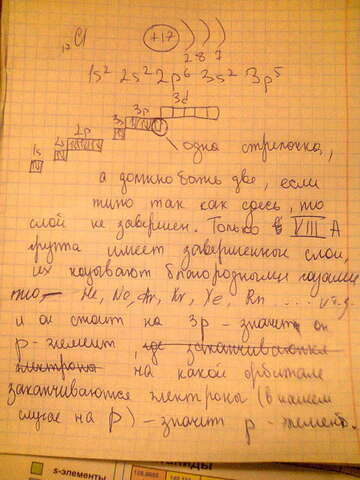 17 Cl +17
2 8 7
1s² 2s² 2p⁶ 3s² 3p⁵
3d
3p
3s
2p
2s
1s
одна стрелочка,
а должно быть две, если
типо так как здесь, то
слой не завершен. Только в VIII A
группа имеет завершенные слои,
их называют благородными газами
это He, Ne, Ar, Kr, Xe, Rn ...
и он стоит на 3p - значит он
p-элемент, где заканчиваются
электроны на какой орбитале
заканчиваются электроны (в нашем
случае на p) - значит p-элемент.
s-элементы